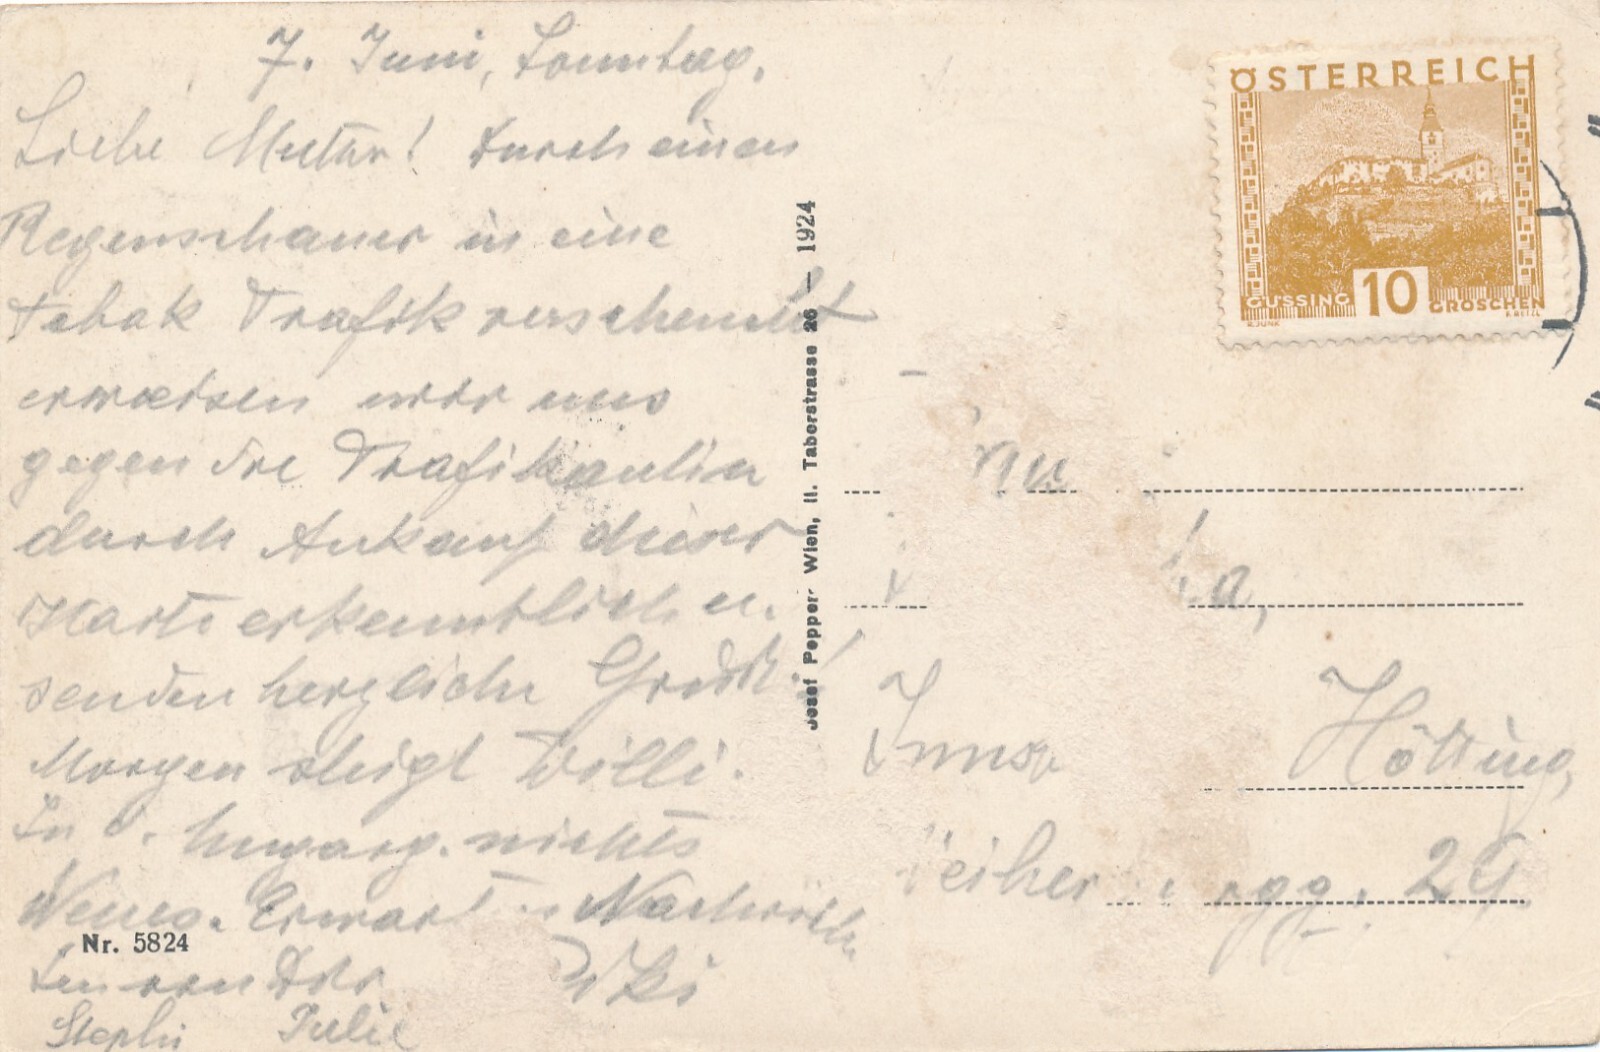 7. Juni, Sonntag.
Liebe Mutter! Durch einen
Regenschauer in eine
Tabak Trafik verscheucht
erweisen wir uns
gegen die Trafikantin
durch Ankauf dieser
Karte erkenntlich u.
senden herzliche Grüße!
Morgen steigt Willi.
In d. nichts
Neues. Erwarten Nachrich
ten von Dir
Stephi Julie
Josef Popper Wien, II. Taborstrasse 26 — 1924
Nr. 5824
ÖSTERREICH
GÜSSING 10 GROSCHEN
Hötting,
29